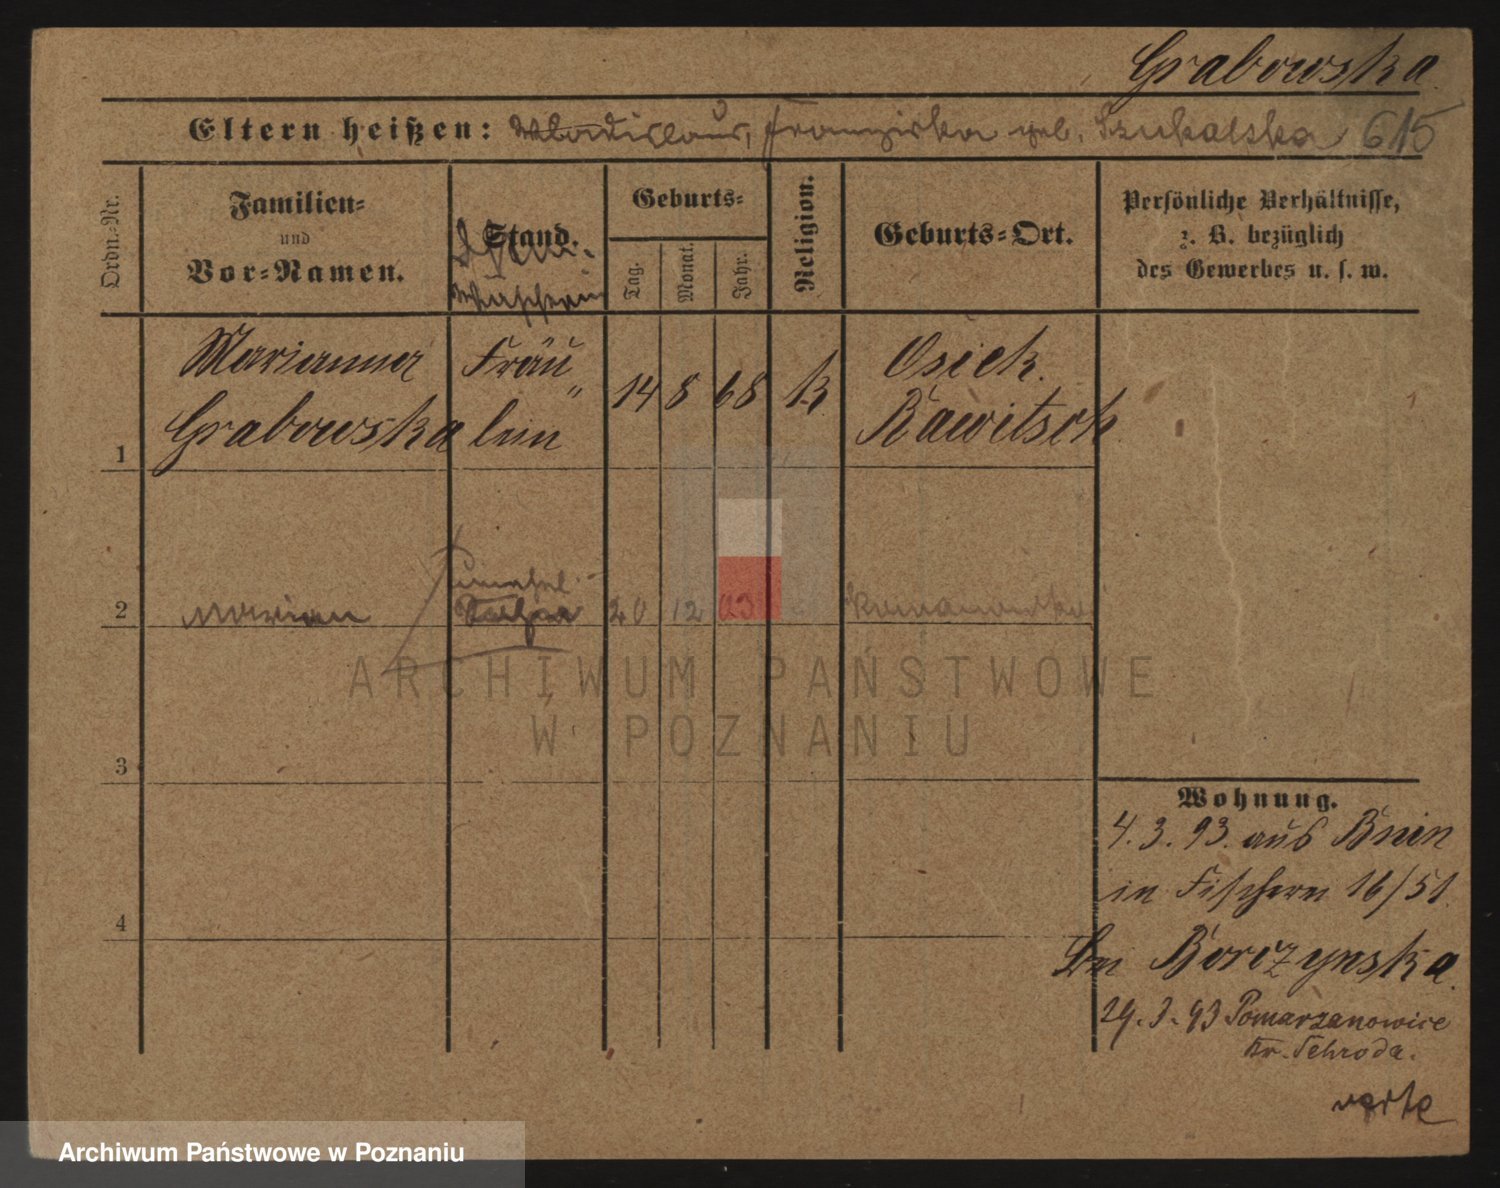 Grabowska
Eltern heißen: Wladislaus, Franziska geb. Szukalska 615
Ordn.-Nr.
Familien-
und
Vor-Namen.
Stand.
Geburts-
Tag.
Monat.
Jahr.
Religion.
Geburts-Ort.
Persönliche Verhältnisse,
z. B. bezüglich
des Gewerbes u. s. w.
Marianna Fräu„ 14 8 68 K Osiek.
1 Grabowska lein Rawitsch
unehel.
2 Marian 20 12 03
3
4
ARCHIWUM PAŃSTWOWE
W POZNANIU
Wohnung.
4.3.93. aus Bnin
in Fischerei 16/51.
bei Borczynska.
29.3.93 Pomarzanowice
Kr. Schroda.
verte
Archiwum Państwowe w Poznaniu